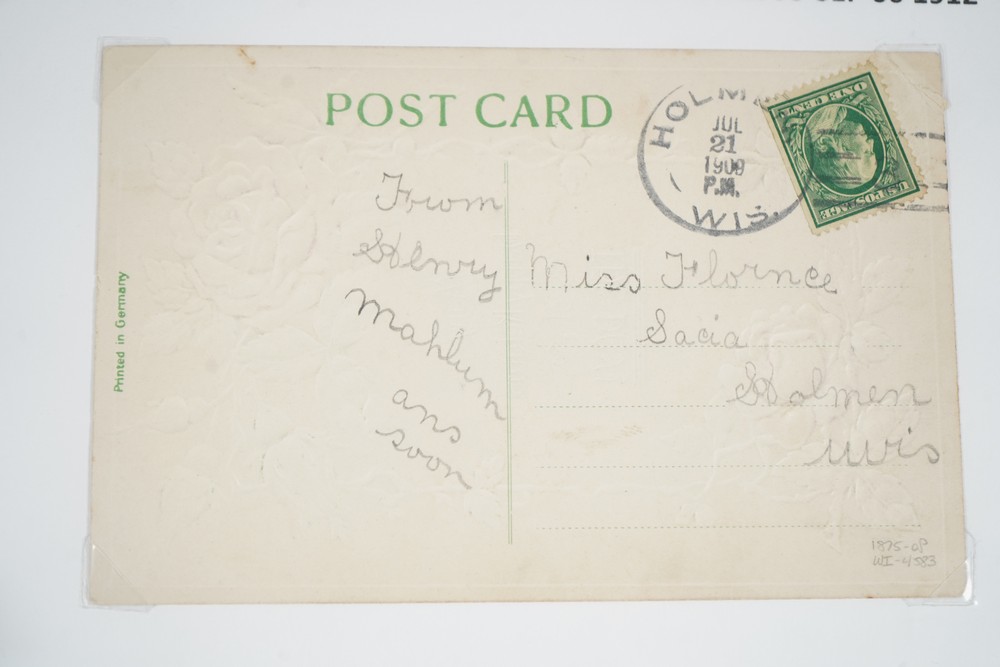 1912
POST CARD
HOLM
JUL
21
1909
P.M.
WIS.
ONE CENT
U.S. POSTAGE
From
Henry
Mahlum
ans
soon
Miss Flornce
Sacia
Holmen
Wis
Printed in Germany
1875-OP
WI-4583